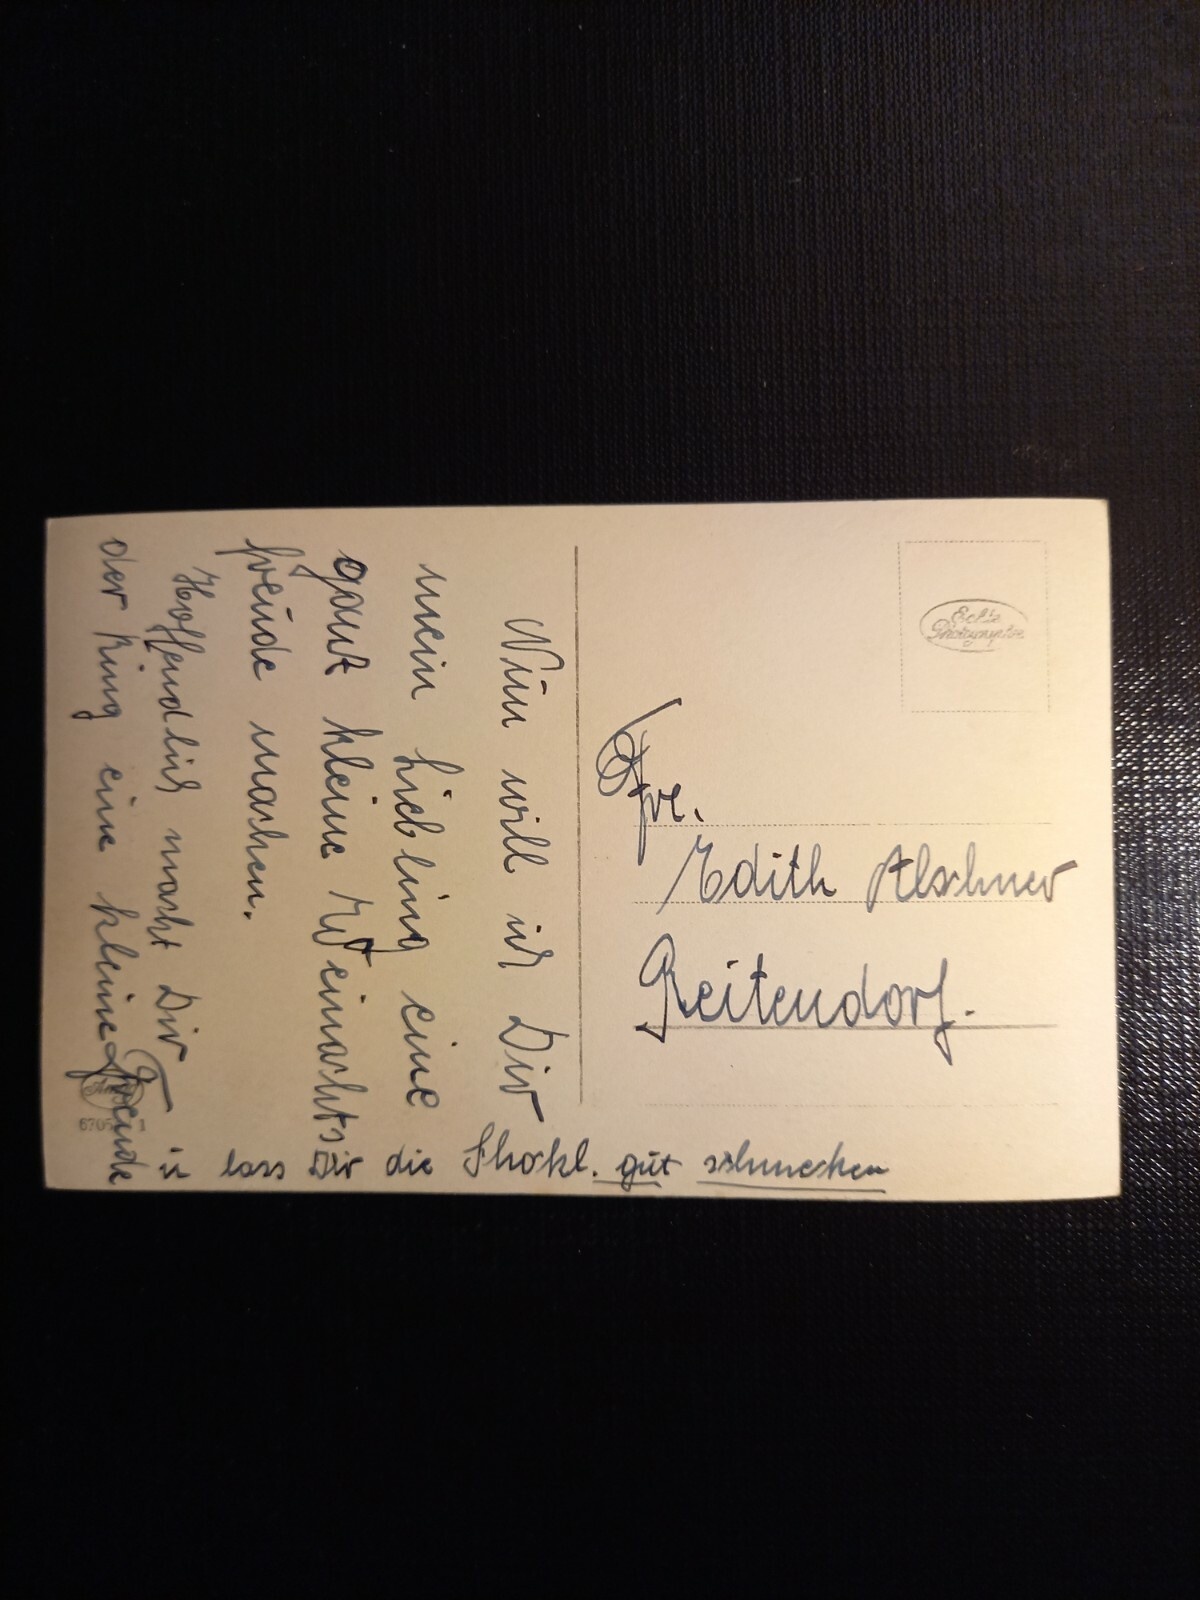 Nun will ich Dir
mein Liebling eine
ganz kleine Weinachts
freude machen.
Hoffendlich macht Dir
der Ring eine kleine Freude
u lass Dir die Shokl. gut schmecken
Echte
Photographie
Frl.
Edith Alschner
Reitendorf.